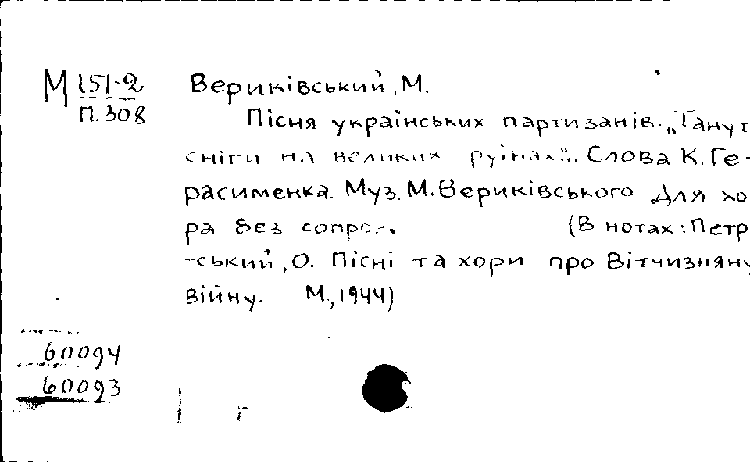 М 151-2 Вериківський, М.
П.308
Пісня українських партизанів. „Тануть
сніги на великих руїнах". Слова К. Ге-
расименка. Муз. М. Вериківського Для хо
ра без супро.. (В нотах: Петр
-ський, О. Пісні та хори про Вітчизняну
війну. М., 1944)
60094
60093